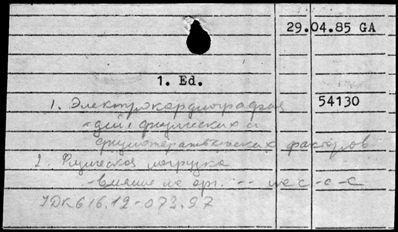 29.04.85 GA
1. Ed.
1. Электрокардиография
54130
- дей. физических и
физиотерапевтических факторов
2. Физическая нагрузка
- влияние на орг. -- с-с-с
УДК 616.12-073.97